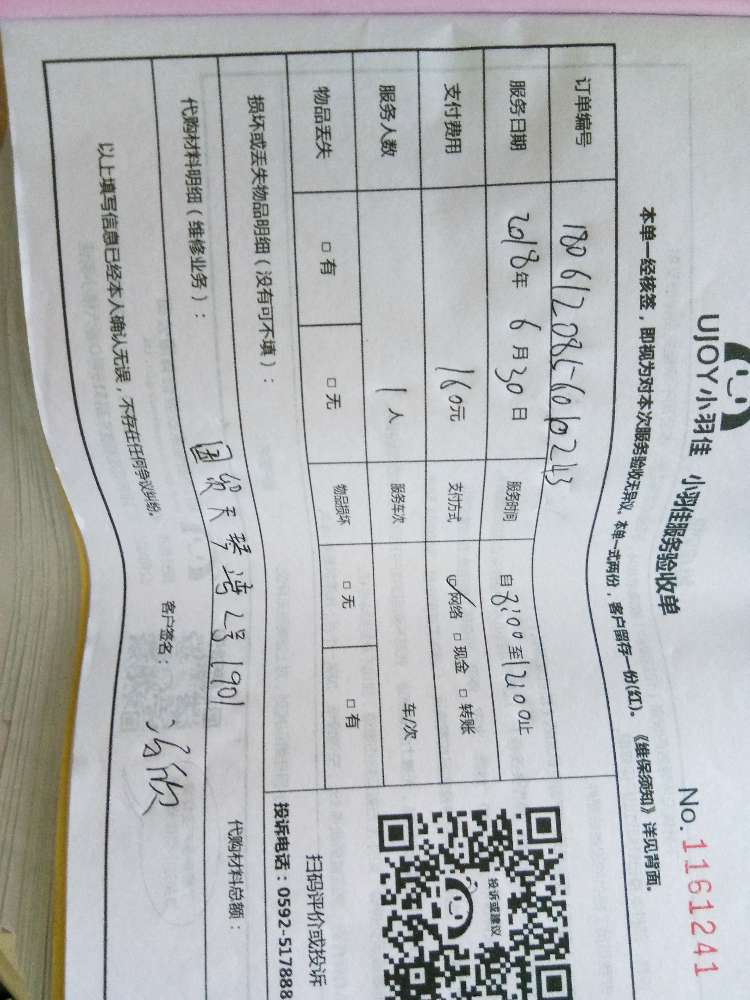 UJOY小羽佳 小羽佳服务验收单
No. 1161241
本单一经核签，即视为对本次服务验收无异议，本单一式两份，客户留存一份(红)。《维保须知》详见背面。
订单编号
服务日期 2018年 6月30日 服务时间 自8:00至12:00止
支付费用 160元 支付方式 ☑网络 □现金 □转账
服务人数 1人 服务车次 车/次
物品丢失 □有 □无 物品损坏 □无 □有
损坏或丢失物品明细（没有可不填）：
代购材料明细（维修业务）： 代购材料总额：
国贸天琴湾2号1901
以上填写信息已经本人确认无误，不存在任何争议纠纷。 客户签名：
投诉或建议
扫码评价或投诉
投诉电话：0592-517888